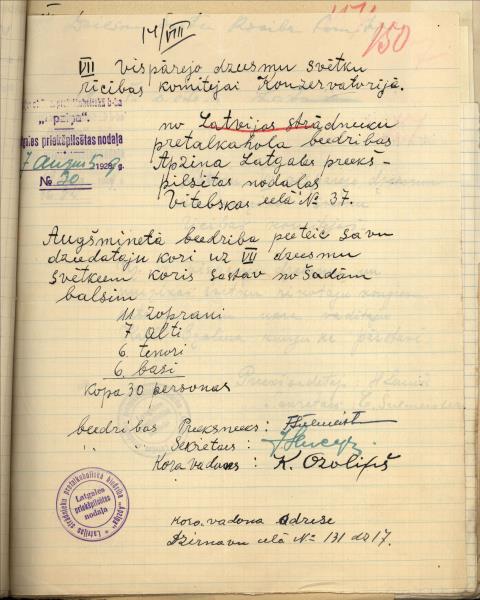 14/VIII
150
VII vispārejo dzeesmu svētku
rīcības komitejai Konzervatorijā.
"Apziņa".
Latgales priekšpilsētas nodaļa
7 August 1928 g.
№ 20
no Latvijas strādneeku
pretalkahola beedribas
Apziņa Latgales preeks-
pilsētas nodaļas
Vitebskas eelā № 37.
Augšminetā beedriba peeteic savu
dzeedataju kori uz VII dzeesmu
svētkeem koris sastav no šadām
balsim
11 zoprani
7 alti
6. tenori
6. basi
Kopa 30 personas
beedribas Preeksneeks:
" Sekretars :
Kora vadones : K. Ozoliņš
Latvijas strādnieku pretalkoholiskā biedrība „Apziņa"
Latgales
priekšpilsētas
nodaļa
Kora vadona adrise
Dzirnavu eelā № 131 dz 17.